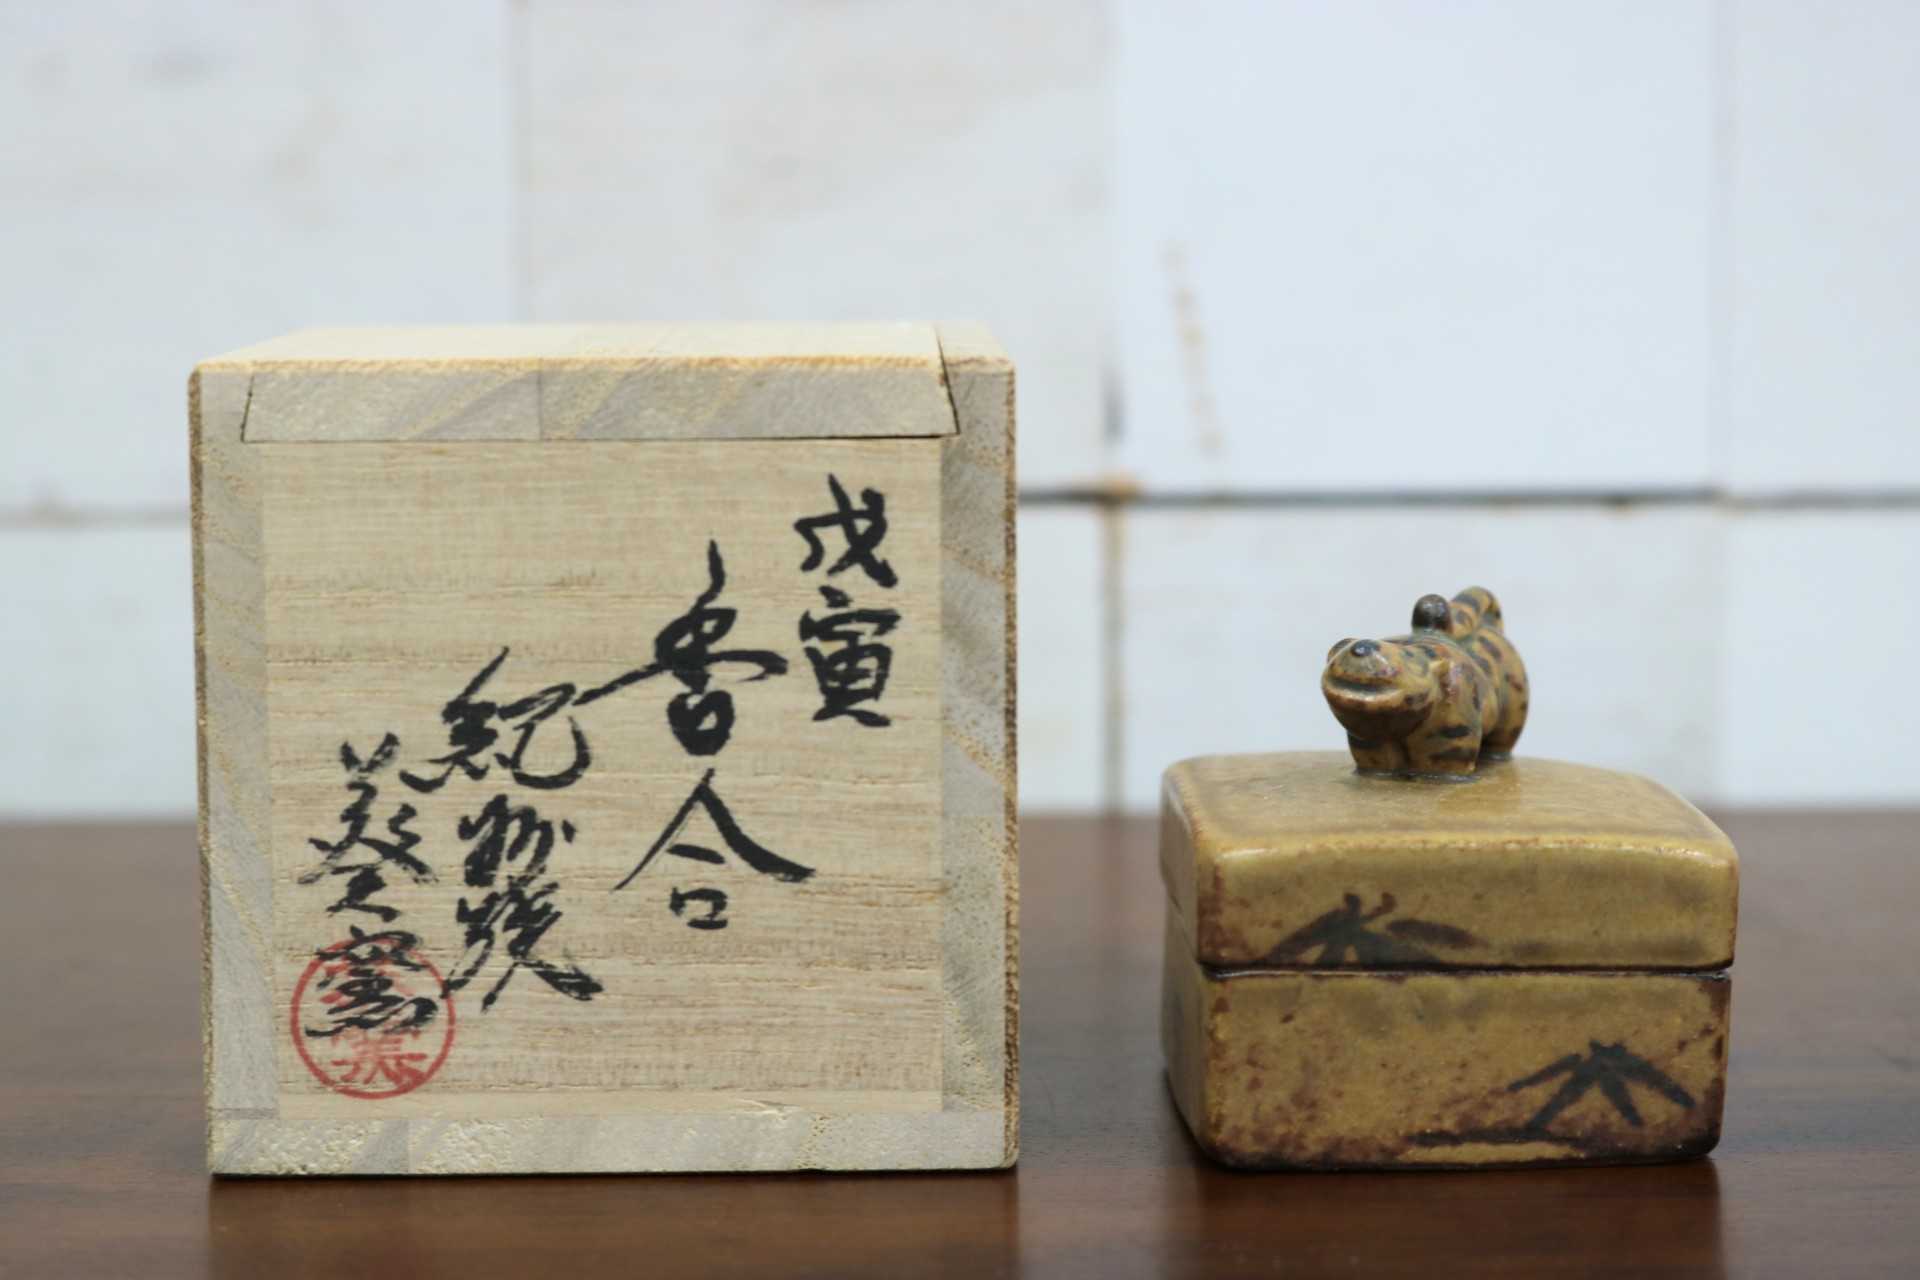 戊寅
香合
紀州焼
葵窯